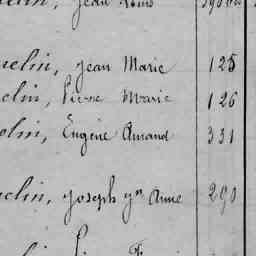 Jean
uelin, Jean Marie 125
elin, Pierre Marie 126
olin, Eugène Amand 331
uelin, Joseph yn Anne 290